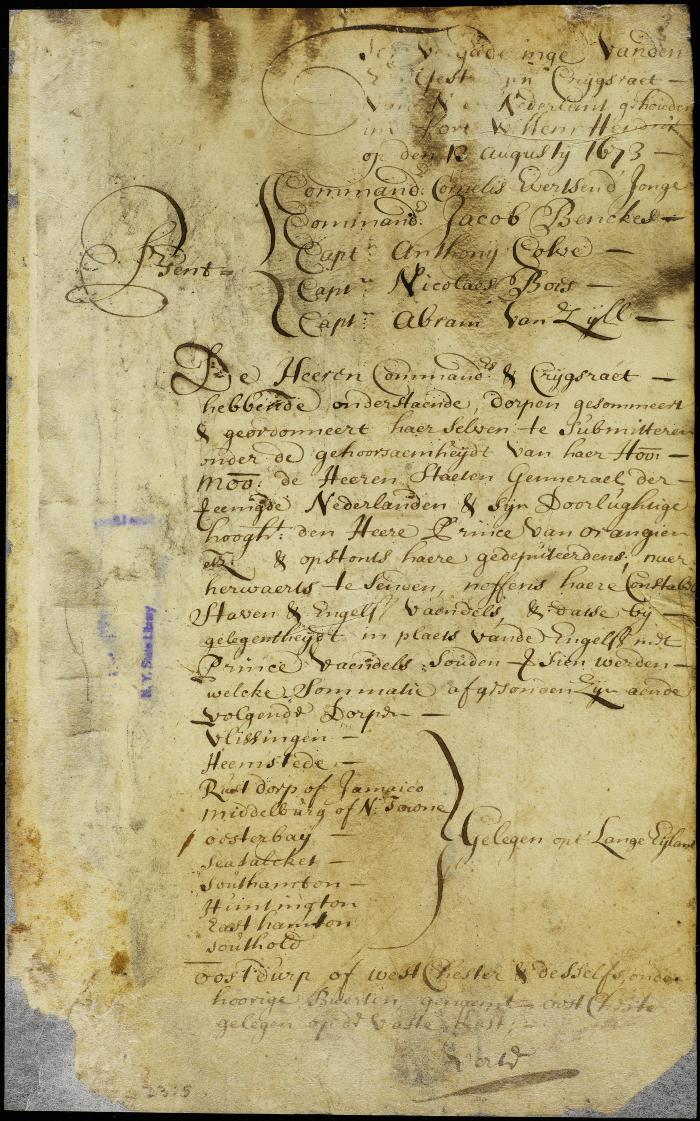 Vanden
Crijgsraet
Nederlant gehouden
int Fort Willem Hendrik
op den 12 Augusty 1673
Command: Cornelis Evertsen d' Jonge
Command: Jacob Benckes
Capt: Anthony Colve
Capt: Nicolaes Boes
Capt: Abram Van Zyll
Present
De Heeren Command: & Crijgsraet
hebbende onderstaende dorpen gesommeert
& geordonneert haer selven te submitteren
onder de gehoorsaemheydt van haer Hoo:
Moo: de Heeren Staeten Generael der
Nederlanden & Sijn Doorlughtige
hoogh: den Heere Prince van Orangien
& opstonts haere gedeputeerdens naer
herwaerts te senden, neffens haere Constabls
Staven & Engelse Vaendels, &
gelegentheydt in plaets vande Engelse met
Prince Vaendels souden werden
welcke Sommatie afgesonden zijn aende
volgende Dorpen
Vlissingen
Heemstede
Rustdorp of Jamaico
Middelburg of N:
Oosterbay
Seatalcket
Southamton
Huntington
East hamton
Southold
Gelegen opt Lange Eijlant
Oostdurp of West Chester & desselfs onder
hoorige Buerten genaemt Oost Chester
gelegen op de Vaste Kust;
N. Y. State Library
2315